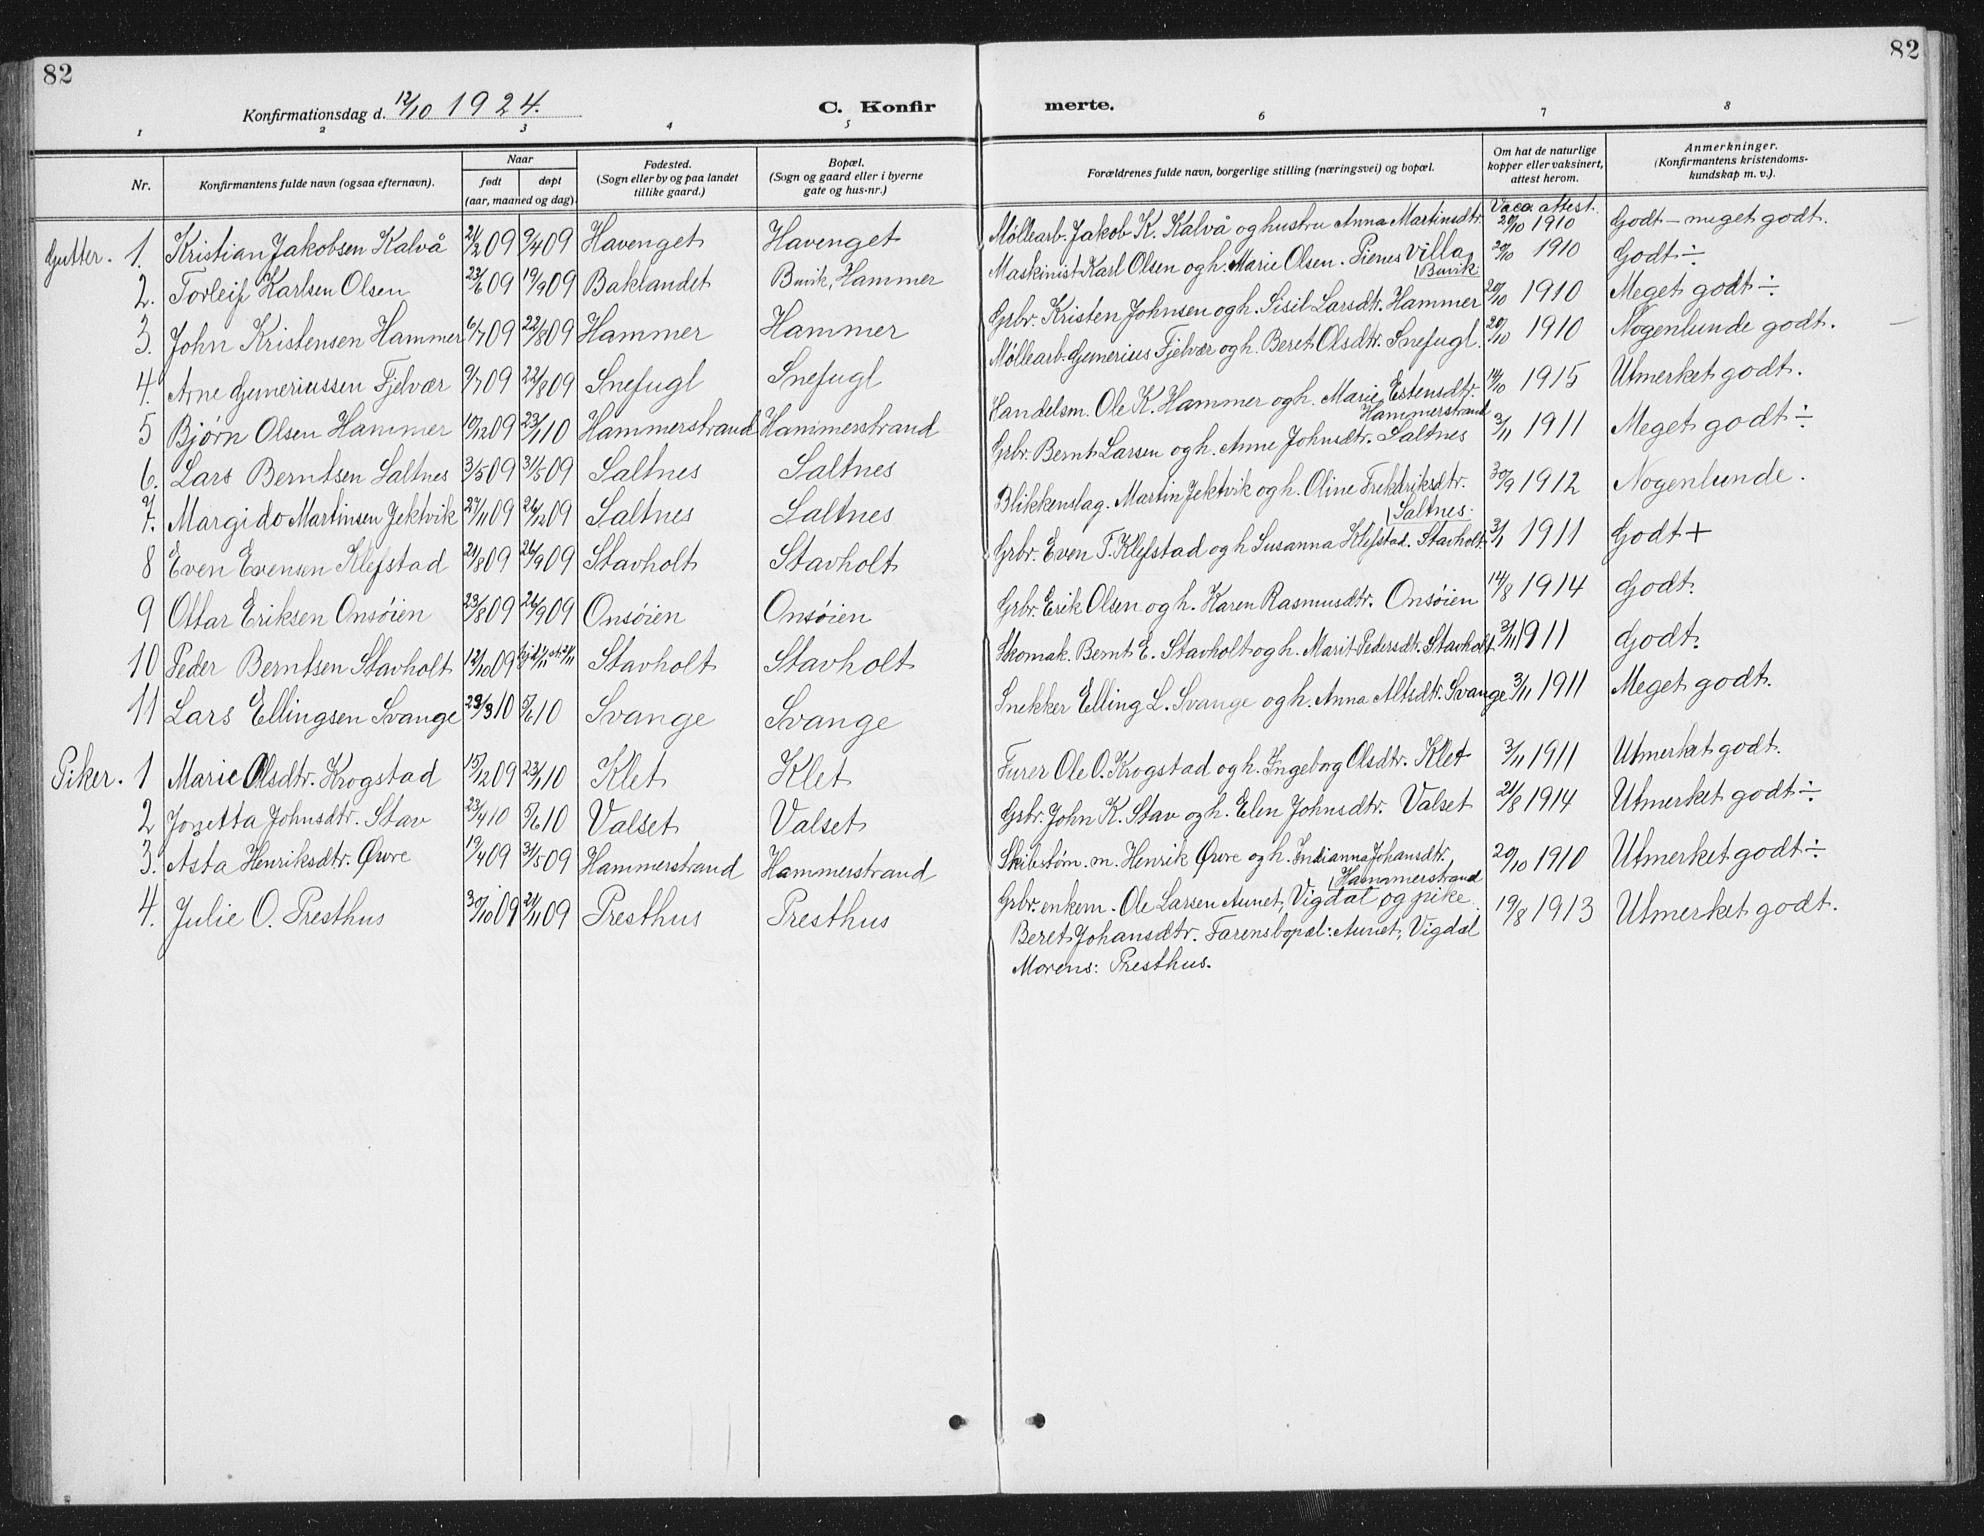 82
82
Konfirmationsdag d. 12/10 1924.
C. Konfir merte.
1 2 3 4 5 6 7 8
Nr.
Konfirmantens fulde navn (ogsaa efternavn).
Naar
født døpt
(aar, maaned og dag)
Fødested.
(Sogn eller by og paa landet
tillike gaard.)
Bopæl.
(Sogn og gaard eller i byerne
gate og hus-nr.)
Forældrenes fulde navn, borgerlige stilling (næringsvei) og bopæl.
Om hat de naturlige
kopper eller vaksinert,
attest herom.
Anmerkninger.
(Konfirmantens kristendoms-
kundskap m. v.).
Vacc. attest.
Gutter. 1. Kristian Jakobsen Kalvå 21/2 09 9/4 09 Havenget Havenget Møllearb. Jakob K. Kalvå og hustru Anna Martinsdtr. 20/10 1910 Godt – meget godt.
2. Torleif Karlsen Olsen 23/6 09 19/9 09 Baklandet Buvik, Hammer Maskinist Karl Olsen og h. Marie Olsen. Pienes Villa Buvik 20/10 1910 Godt ÷
3. John Kristensen Hammer 6/7 09 22/8 09 Hammer Hammer Grbr. Kristen Johnsen og h. Sisil Larsdtr. Hammer 20/10 1910 Meget godt ÷
4. Arne Gumeriussen Fjelvær 9/7 09 22/8 09 Snefugl Snefugl Møllearb. Gumerius Fjelvær og h. Beret Olsdtr. Snefugl. 20/10 1910 Nogenlunde godt.
5 Bjørn Olsen Hammer 10/12 09 23/1 10 Hammerstrand Hammerstrand Handelsm. Ole K. Hammer og h. Marie Estensdtr. Hammerstrand 14/10 1915 Utmerket godt.
6. Lars Berntsen Saltnes 3/5 09 31/5 09 Saltnes Saltnes Grbr. Bernt Larsen og h. Anne Johnsdtr. Saltnes 3/11 1911 Meget godt ÷
7. Margido Martinsen Jektvik 27/11 09 26/12 09 Saltnes Saltnes Blikkenslag. Martin Jektvik og h. Oline Frekdriksdtr. Saltnes. 30/9 1912 Nogenlunde.
8 Even Evensen Klefstad 21/8 09 26/9 09 Stavholt Stavholt Grbr. Even T. Klefstad og h Susanna Klefstad. Stavholt 3/1 1911 Godt +
9 Ottar Eriksen Onsøien 23/8 09 26/9 09 Onsøien Onsøien Grbr. Erik Olsen og h. Karen Rasmusdtr. Onsøien 14/8 1914 Godt.
10 Peder Berntsen Stavholt 12/10 09 Stavholt Stavholt Skomak. Bernt E. Stavholt og h. Marit Pedersdtr. Stavholt 3/11 1911 Godt.
11 Lars Ellingsen Svange 23/3 10 5/6 10 Svange Svange Snekker Elling L. Svange og h. Anna Altsdtr. Svange 3/11 1911 Meget godt.
Piker. 1 Marie Olsdtr. Krogstad 15/12 09 23/1 10 Klet Klet Furer Ole O. Krogstad og h. Ingeborg Olsdtr. Klet 3/11 1911 Utmerket godt.
2 Jonetta Johnsdtr. Stav 23/4 10 5/6 10 Valset Valset Grbr. John K. Stav og h. Elen Johnsdtr. Valset 21/8 1914 Utmerket godt ÷
3. Asta Henriksdtr. Øvre 19/4 09 31/5 09 Hammerstrand Hammerstrand Skibstøm. m. Henrik Øvre og h. Indianna Johansdtr. Hammerstrand 20/10 1910 Utmerket godt ÷
4. Julie O. Presthus 30/10 09 21/11 09 Presthus Presthus Grbr. enkem. Ole Larsen Aunet, Vigdal og pike 19/8 1913 Utmerket godt.
Beret Johansdtr. Farens bopæl: Aunet, Vigdal
Morens: Presthus.